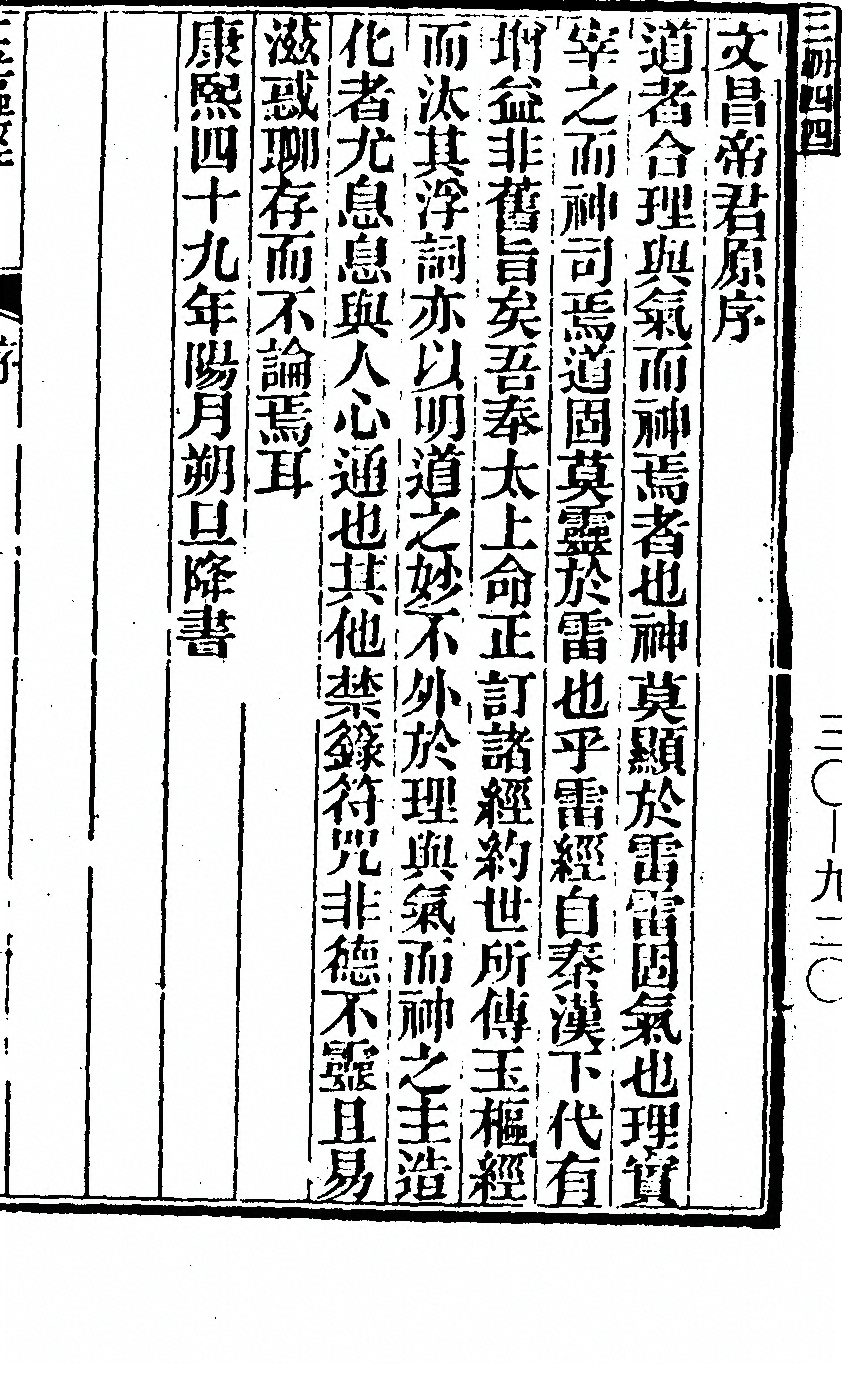 文昌帝君原序
道者合理與氣而神焉者也神莫顯於雷雷固氣也理實
宰之而神司焉道固莫靈於雷也乎雷經自秦漢下代有
增益非舊旨矣吾奉太上命正訂諸經約世所傳玉樞經
而汰其浮詞亦以明道之妙不外於理與氣而神之主造
化者尤息息與人心通也其他禁籙符咒非德不靈且易
滋惑聊存而不論焉耳
康熙四十九年陽月朔旦降書
三〇—九二〇
玉樞經
序